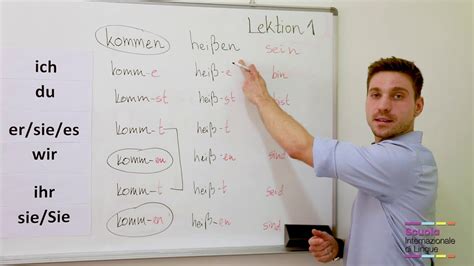 Lektion 1
kommen heißen sein
ich komm-e heiß-e bin
du komm-st heiß-st
er/sie/es komm-t heiß-t
wir komm-en heiß-en sind
ihr komm-t heiß-t seid
sie/Sie komm-en heiß-en sind
Scuola
Internazionale
di Lingue